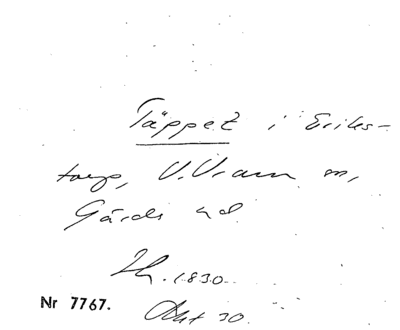 Täppet i Eriks-
torp, V. Vram
Gärds hd
1830
Nr 7767.
Akt 30.